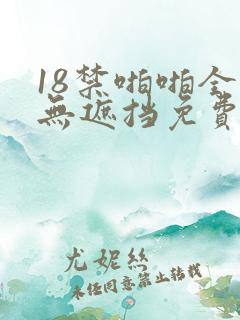 18禁啪啪全
無遮挡免費
尤妮丝
未经同意禁止转载